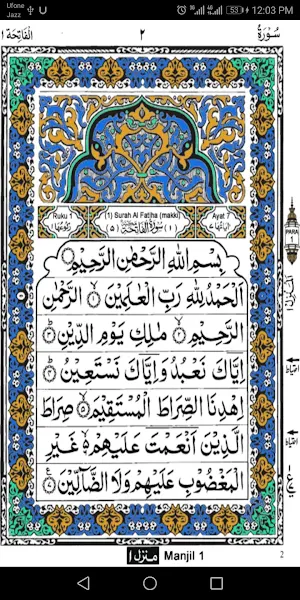 Ufone
Jazz
53
12:03 PM
الفاتحة ١
٢
سُوْرَةُ
Ruku 1
(1) Surah Al Fatiha (makki)
Ayat 7
رُكُوْعُهَا ١
(١) سُوْرَةُ الْفَاتِحَةِ مَكِّيَّةٌ (٥)
اٰيَاتُهَا ٧
بِسْمِ اللّٰهِ الرَّحْمٰنِ الرَّحِيْمِ
اَلْحَمْدُ لِلّٰهِ رَبِّ الْعٰلَمِيْنَ ۙ﴿١﴾ الرَّحْمٰنِ
الرَّحِيْمِ ۙ﴿٢﴾ مٰلِكِ يَوْمِ الدِّيْنِ ؕ﴿٣﴾
اِيَّاكَ نَعْبُدُ وَاِيَّاكَ نَسْتَعِيْنُ ؕ﴿٤﴾
اِهْدِنَا الصِّرَاطَ الْمُسْتَقِيْمَ ۙ﴿٥﴾ صِرَاطَ
الَّذِيْنَ اَنْعَمْتَ عَلَيْهِمْ ۙ﴿٦﴾ غَيْرِ
الْمَغْضُوْبِ عَلَيْهِمْ وَلَا الضَّآلِّيْنَ ﴿٧﴾
PARA
١
اَلْمَنْزِلُ ١
احتیاط
احتیاط
منزل ١
Manjil 1
2